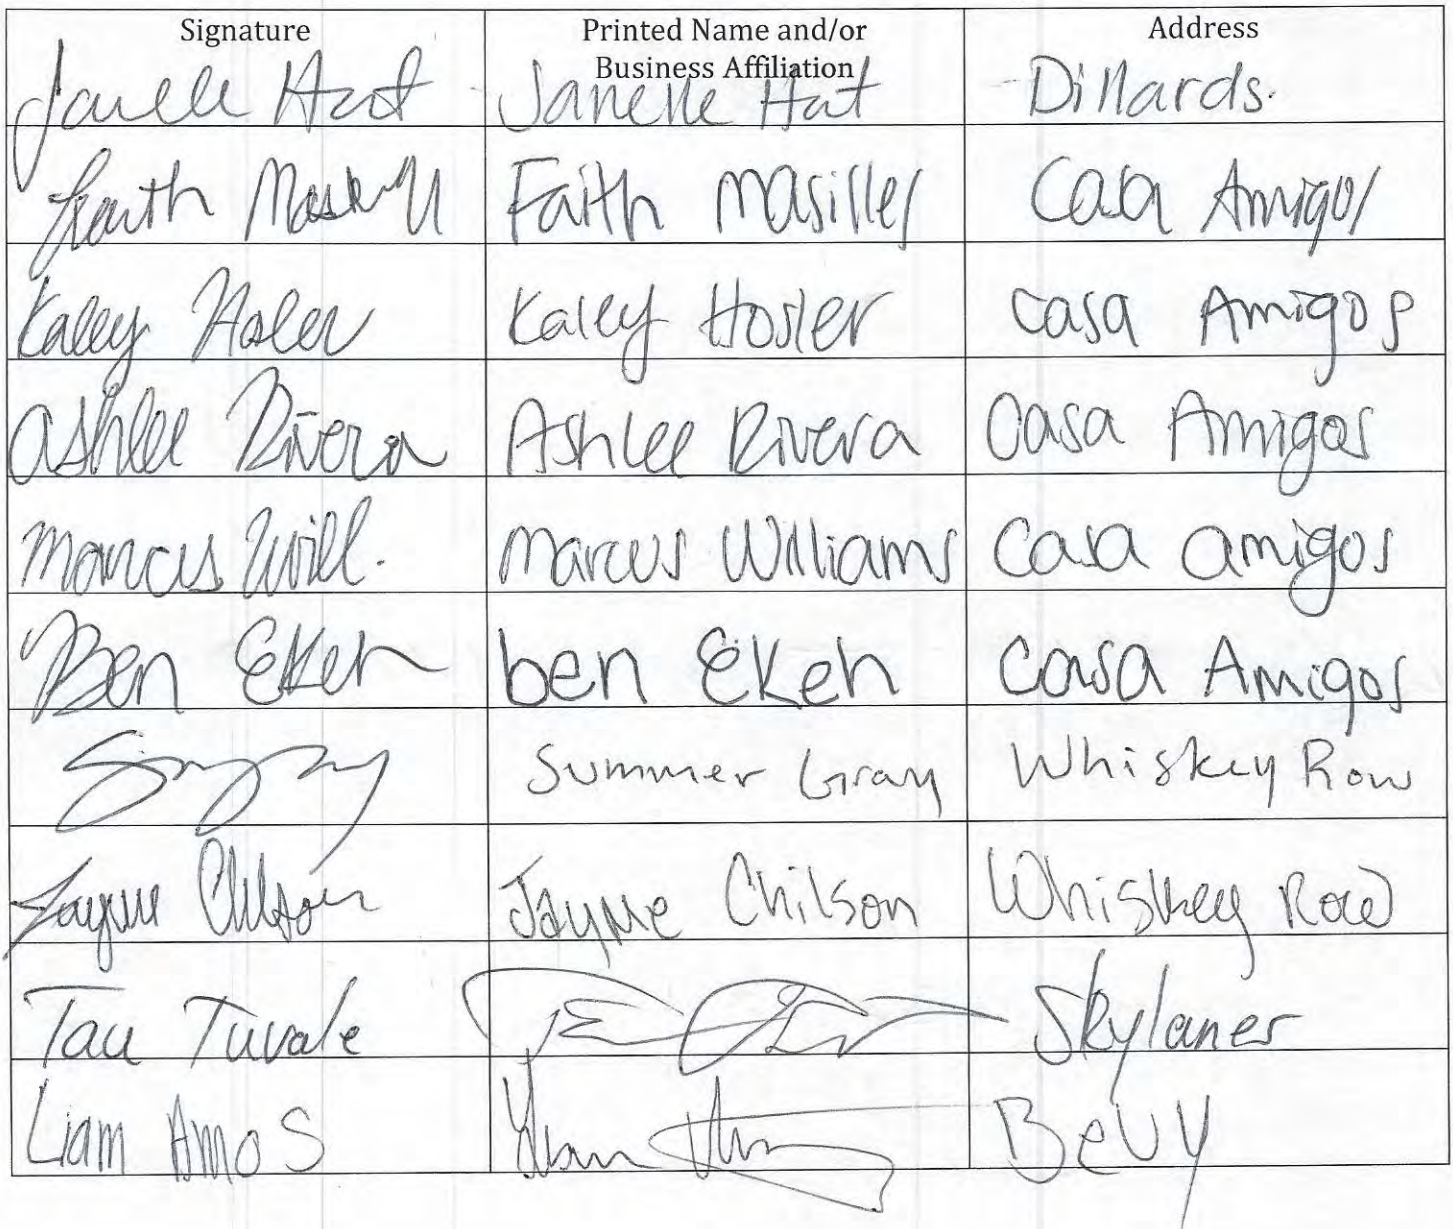 Signature Printed Name and/or Business Affiliation Address
Janelle Hat Janelle Hat Dillards.
Faith Masiller Casa Amigos
Kaley Hosler Kaley Hosler Casa Amigos
Ashlee Rivera Ashlee Rivera Casa Amigos
Marcus Will. Marcus Williams Casa amigos
Ben Ekeh ben Ekeh Casa Amigos
Summer Gray Whiskey Row
Jayme Chilson Jayme Chilson Whiskey Row
Tau Tuvale Skylaner
Liam Amos Bevy